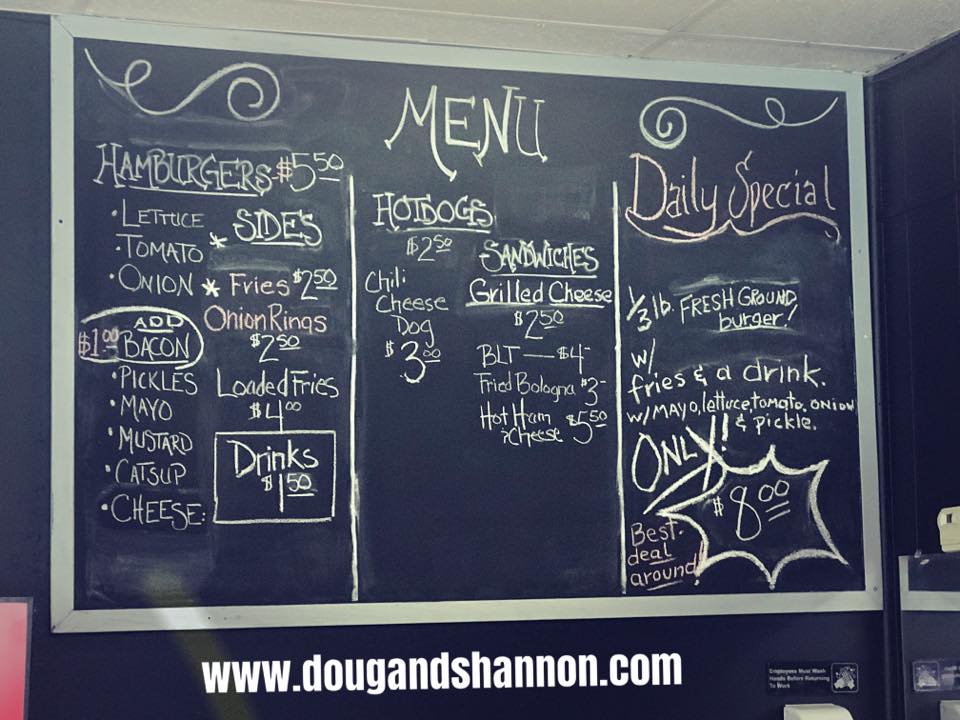 MENU
HAMBURGERS $5.50
• LETTUCE
• TOMATO
• ONION
ADD
$1.00 BACON
• PICKLES
• MAYO
• MUSTARD
• CATSUP
• CHEESE:
* SIDES
* Fries $2.50
Onion Rings
$2.50
Loaded Fries
$4.00
Drinks
$1.50
HOTDOGS
$2.50
Chili
Cheese
Dog
$3.00
SANDWICHES
Grilled Cheese
$2.50
BLT — $4-
Fried Bologna $3-
Hot Ham
& Cheese $5.50
Daily Special
1/3 lb. FRESH GROUND
burger!
w/
fries & a drink.
w/ MAYO, lettuce, tomato, ONION
& pickle.
ONLY!
$8.00
Best
deal
around!
www.dougandshannon.com
Employees Must Wash
Hands Before Returning
To Work